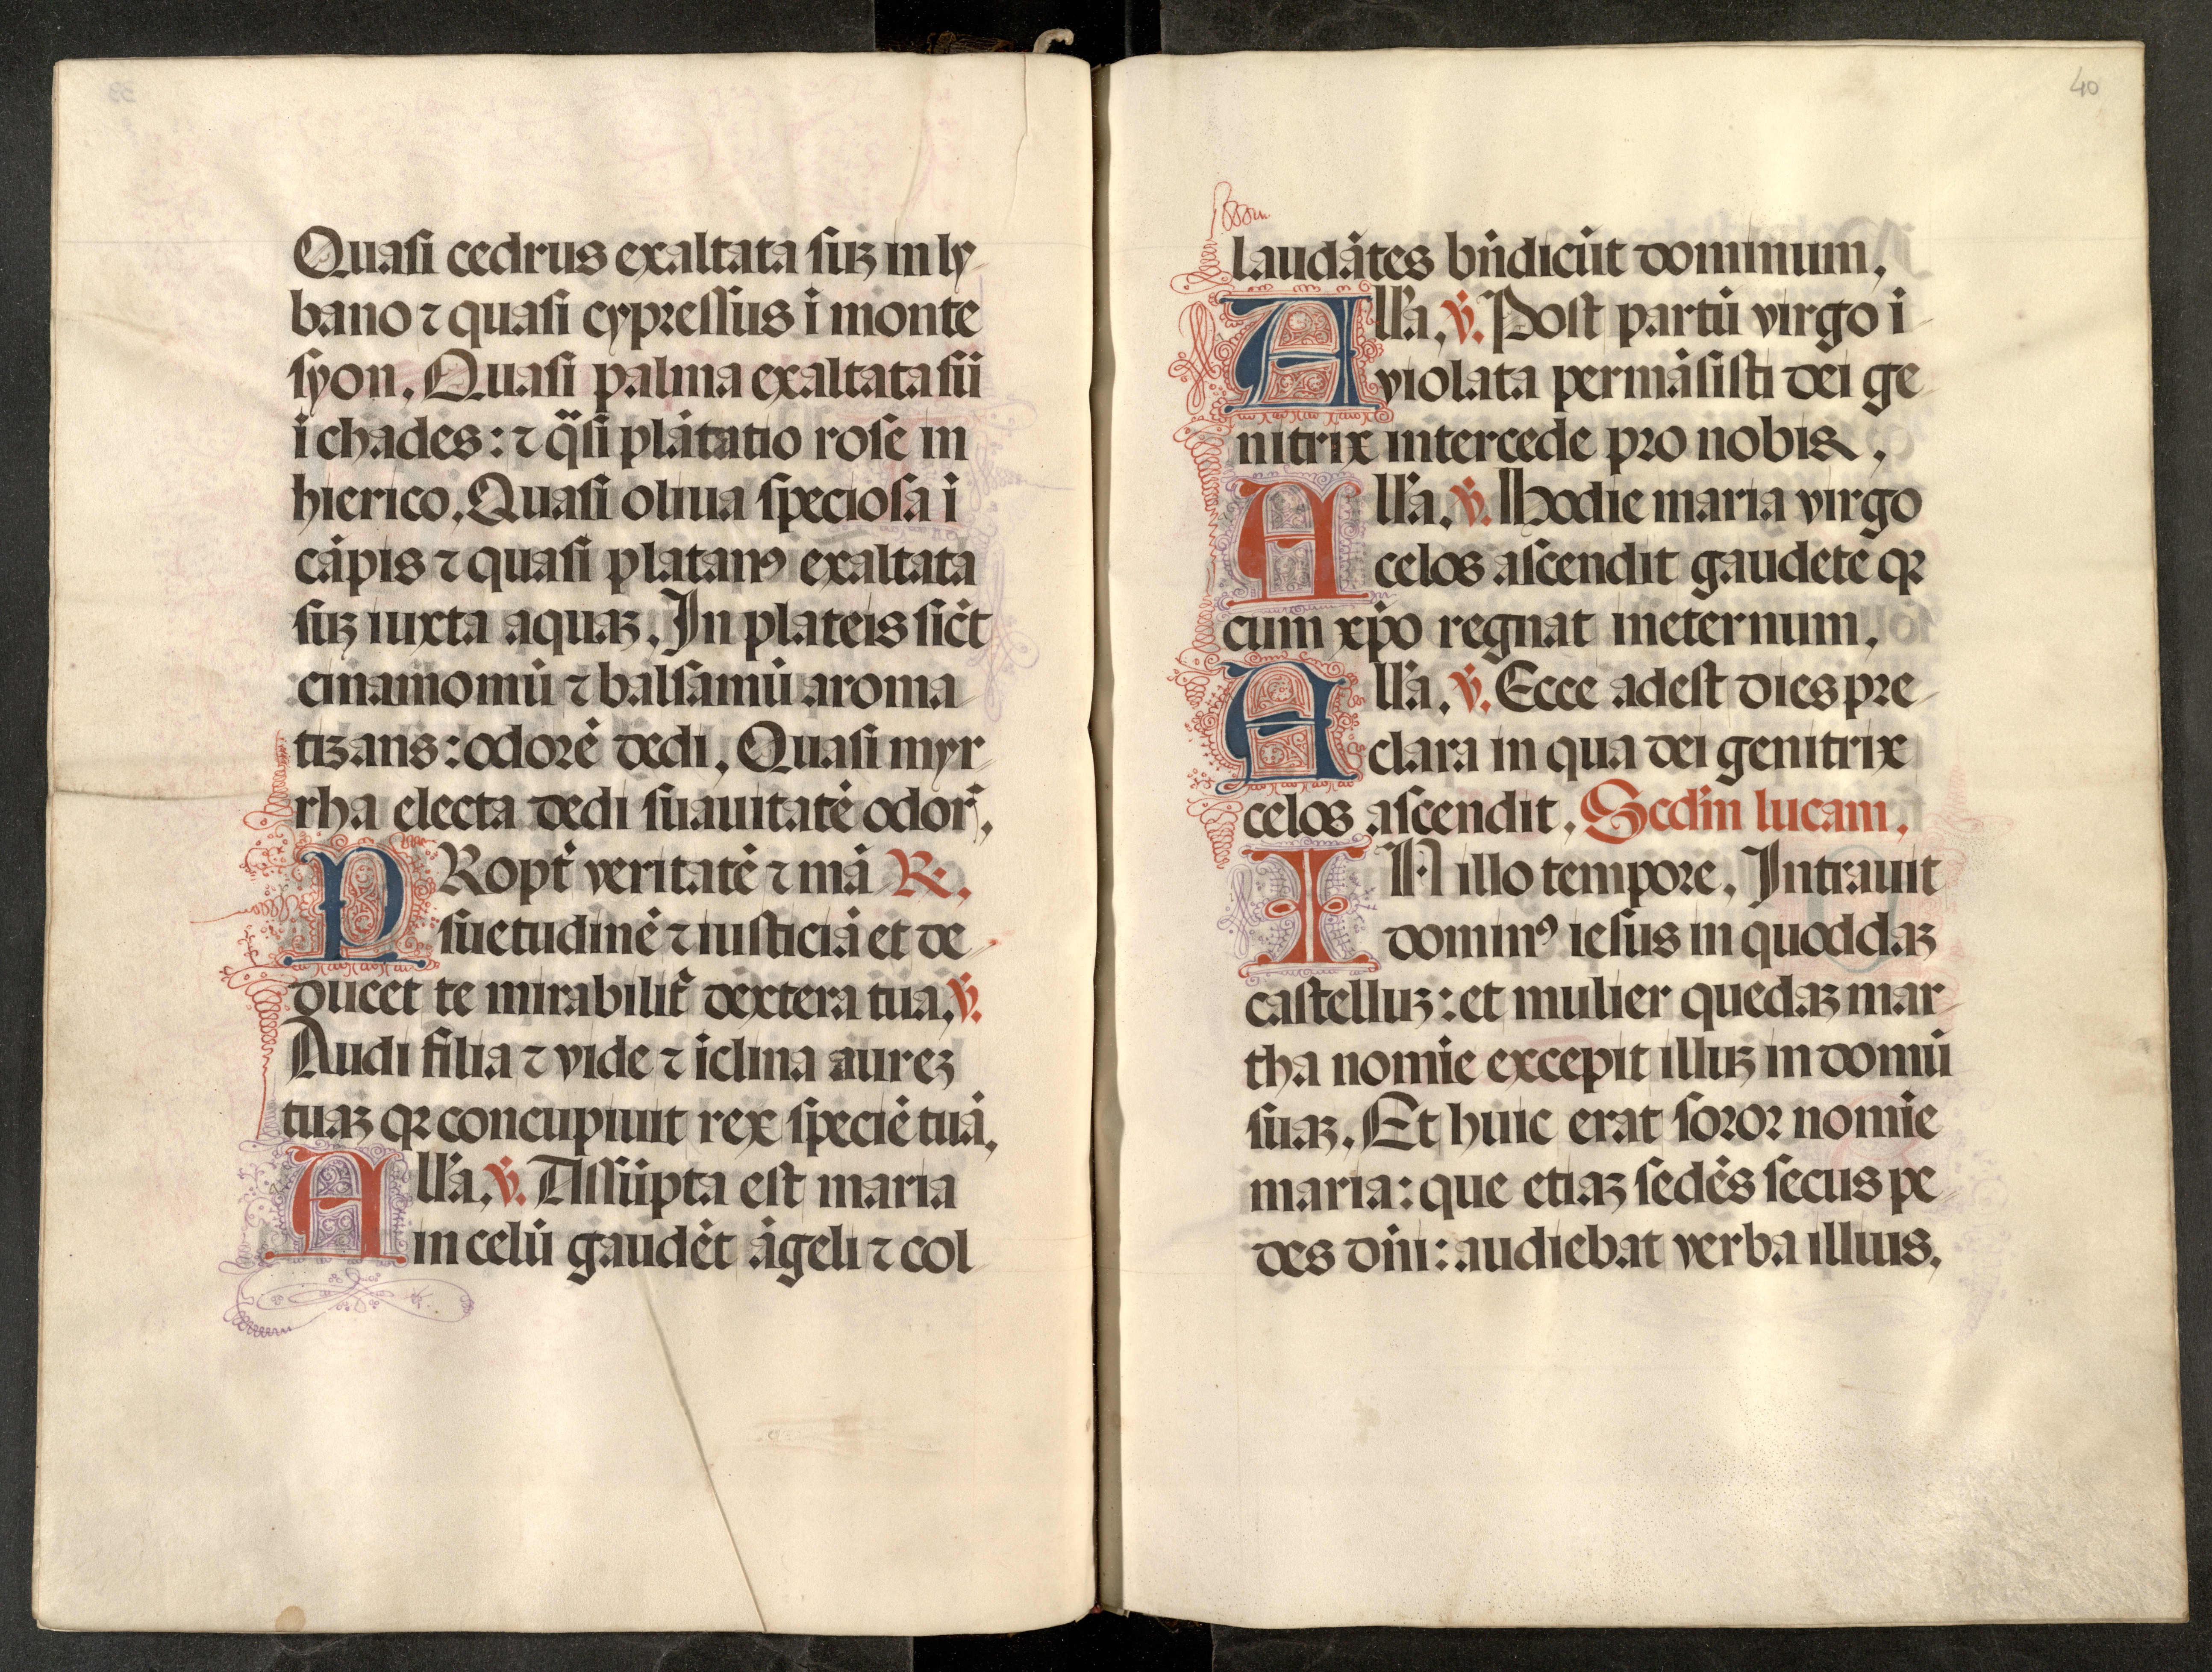 Quasi cedrus exaltata suꝫ in ly
bano ⁊ quasi cypressus ī monte
syon. Quasi palma exaltata sū
ī chades: ⁊ q̈si plātatio rose in
hierico. Quasi oliua speciosa ī
cāpis ⁊ quasi platanꝰ exaltata
suꝫ iuxta aquaꝫ. In plateis sic̄t
cinamomū ⁊ balsamū aroma
tizans: odorē dedi. Quasi myr
rha electa dedi suauitatē odor̄.
PRopt̄ veritatē ⁊ mā R.
suetudinē ⁊ iusticiā et de
ducet te mirabilit̄ dextera tua. v̄.
Audi filia ⁊ vide ⁊ īclina aureꝫ
tuaꝫ qꝛ concupiuit rex speciē tuā.
All'a. v̄. Assūpta est maria
in celū gaudēt āgeli ⁊ col
40
laudātes bn̄dicūt dominum.
All'a. v̄. Post partū virgo ī
violata permāsisti dei ge
nitrix intercede pro nobis.
All'a. v̄. Hodie maria virgo
celos ascendit gaudete qꝛ
cum xp̄o regnat ineternum.
All'a. v̄. Ecce adest dies pre
clara in qua dei genitrix
celos ascendit. Scd̄m lucam.
IN illo tempore. Intrauit
dominꝰ iesus in quoddaꝫ
castelluꝫ: et mulier quedaꝫ mar
tha nomīe excepit illuꝫ in domū
suaꝫ. Et huic erat soror nomīe
maria: que etiaꝫ sedēs secus pe
des dn̄i: audiebat verba illius.